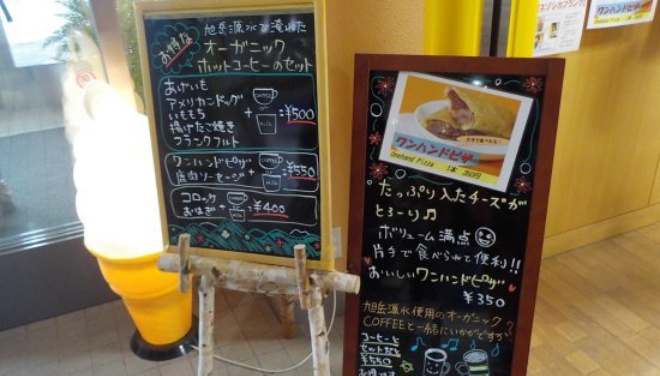 お得な
旭岳源水で淹れた
オーガニック
ホットコーヒーのセット
あげいも
アメリカンドッグ
いももち
揚げたこ焼き
フランクフルト
+
COFFEE
milk
⇒¥500
ワンハンドピザ
鹿肉ソーセージ
+
COFFEE
milk
⇒¥550
コロッケ
おはぎ
+
⇒¥400
ワンハンドピザ
Onehand Pizza 1本 350円
たっぷり入たチーズが
とろーり♫
ボリューム満点
片手で食べられて便利!!
おいしいワンハンドピザ
¥350
旭岳源水使用のオーガニック
COFFEEと一緒にいかがですか?
コーヒーと
セットなら
¥550
ワンハンドピザ